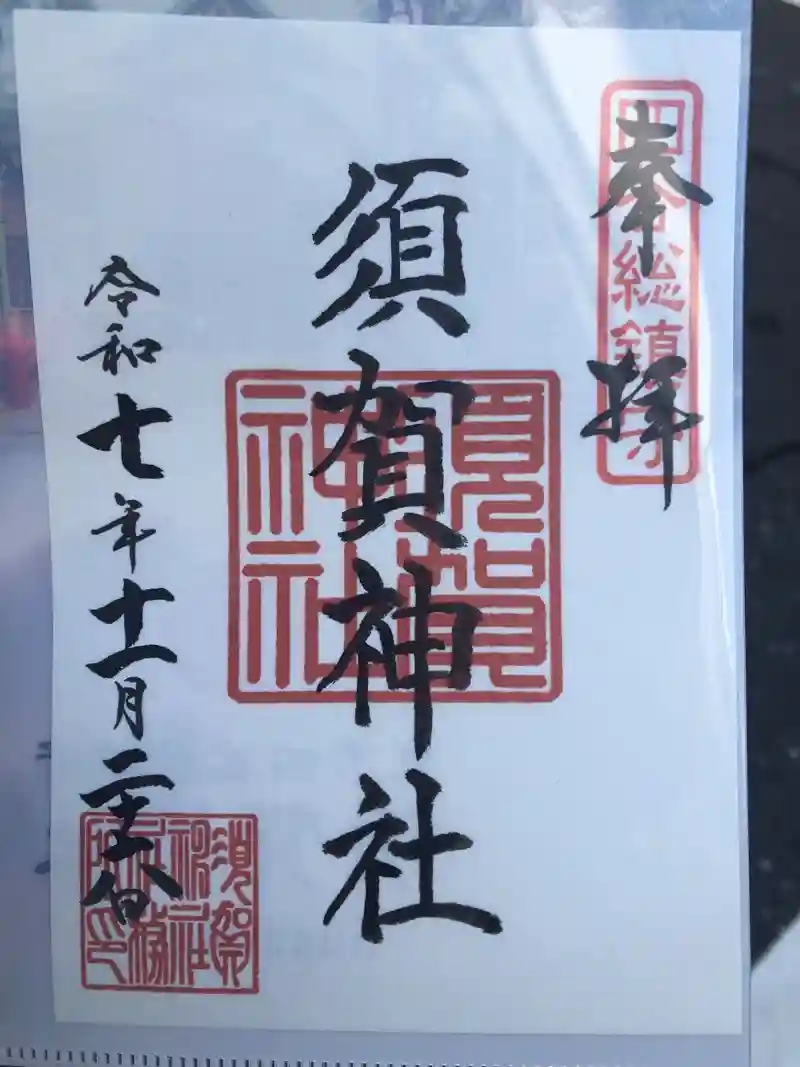 奉拝
四谷総鎮守
須賀神社
須賀神社
令和七年十一月二十八日
須賀神社